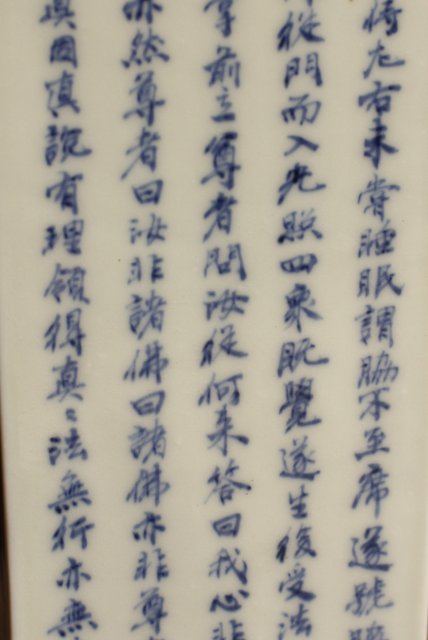 侍左右未嘗睡眠謂脇不至席遂號
從門而入光照四衆既覺遂生後受法
前立尊者問汝從何來答曰我心非
亦然尊者曰汝非諸佛曰諸佛亦非尊
真因真說有理領得真〻法無行亦無